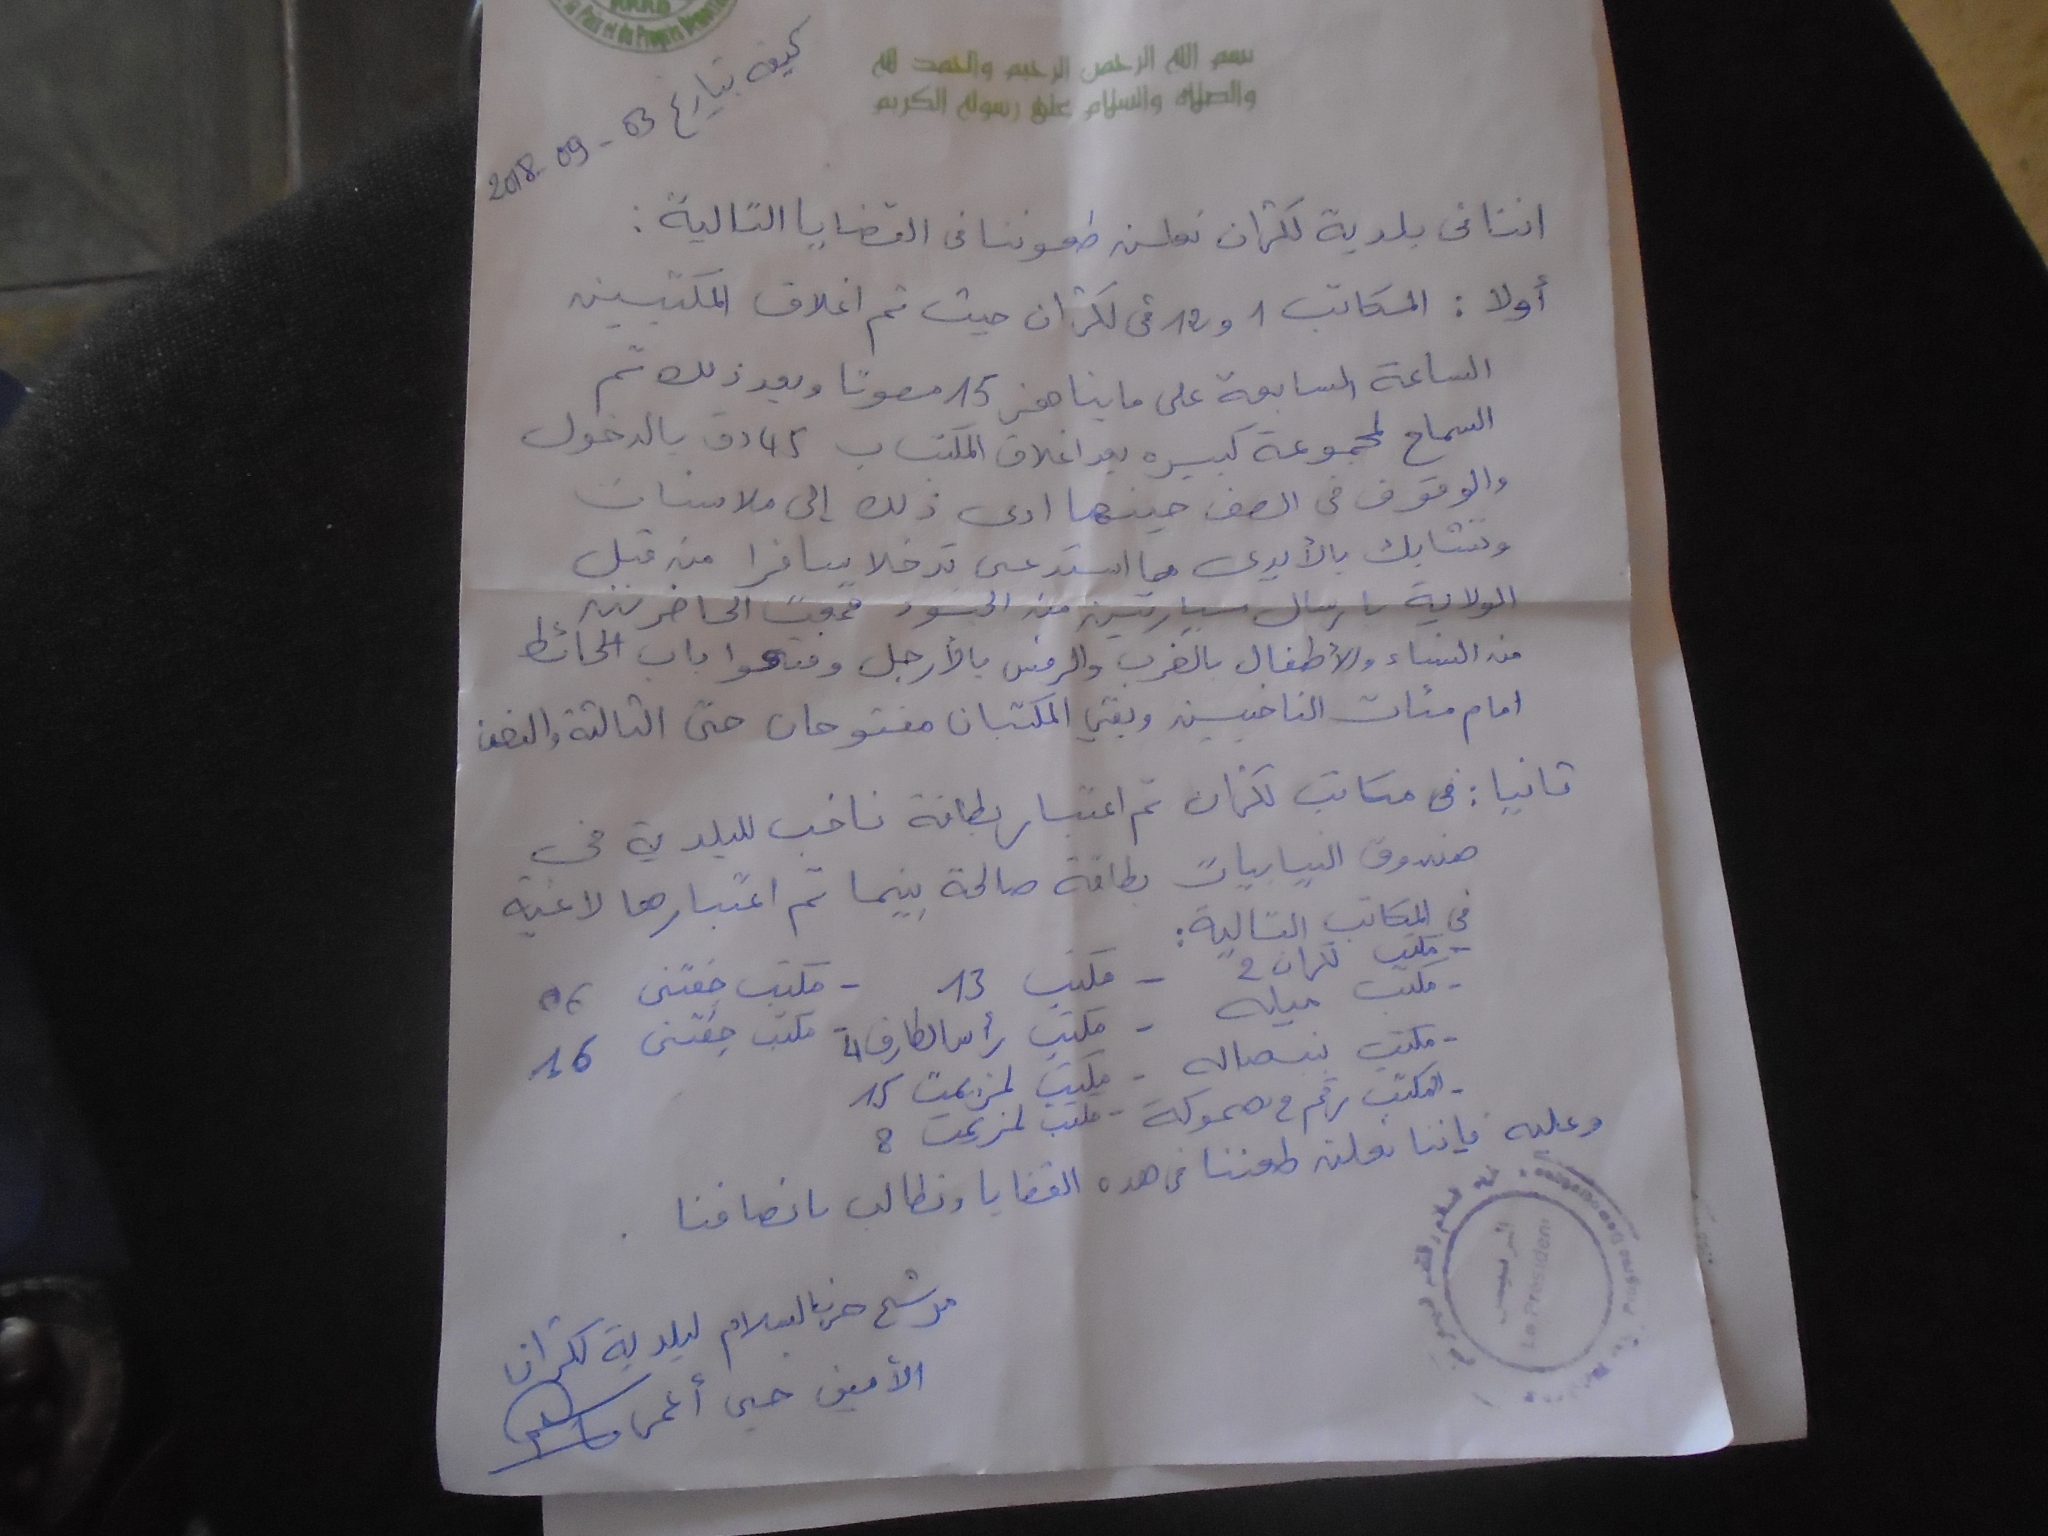 la Paix et du Progrès Democratique
بسم الله الرحمن الرحيم والحمد لله
والصلاه والسلام على رسوله الكريم
كيفه بتاريخ 03-09-2018
اننا فى بلدية لكران نعلن طعوننا فى القضايا التالية :
أولا : المكاتب 1 و 12 فى لكران حيث تم اغلاق المكتبين
الساعة السابعة على ما يناهز 15 مصوتا وبعد ذلك تم
السماح لمجموعة كبيره بعد اغلاق المكتب ب 45 دق بالدخول
والوقوف فى الصف حينها ادى ذلك إلى ملاسنات
وتشابك بالأيدى مما استدعى تدخلا سافرا من قبل
الولاية بارسال سيارتين من الجنود الحاضرين
من النساء والأطفال بالضرب والرفس بالأرجل وفتحوا باب الحائط
امام مئات الناخبين وبقي المكتبان مفتوحان حتى الثالثة والنصف
ثانيا : فى مكاتب لكران تم اعتبار بطاقة ناخب للبلدية فى
صندوق النيابيات بطاقة صالحة بينما تم اعتبارها لاغية
فى المكاتب التالية :
- مكتب لكران 2 - مكتب 13 - مكتب 06
- مكتب ميله - مكتب رأس الطارف 4 - مكتب 16
- مكتب - مكتب 15
- المكتب رقم - مكتب 8
وعليه فإننا نعلن طعننا فى هذه القضايا ونطالب بانصافنا .
الرئيس
Le President
مرشح حزب السلام لبلدية لكران
الأمين